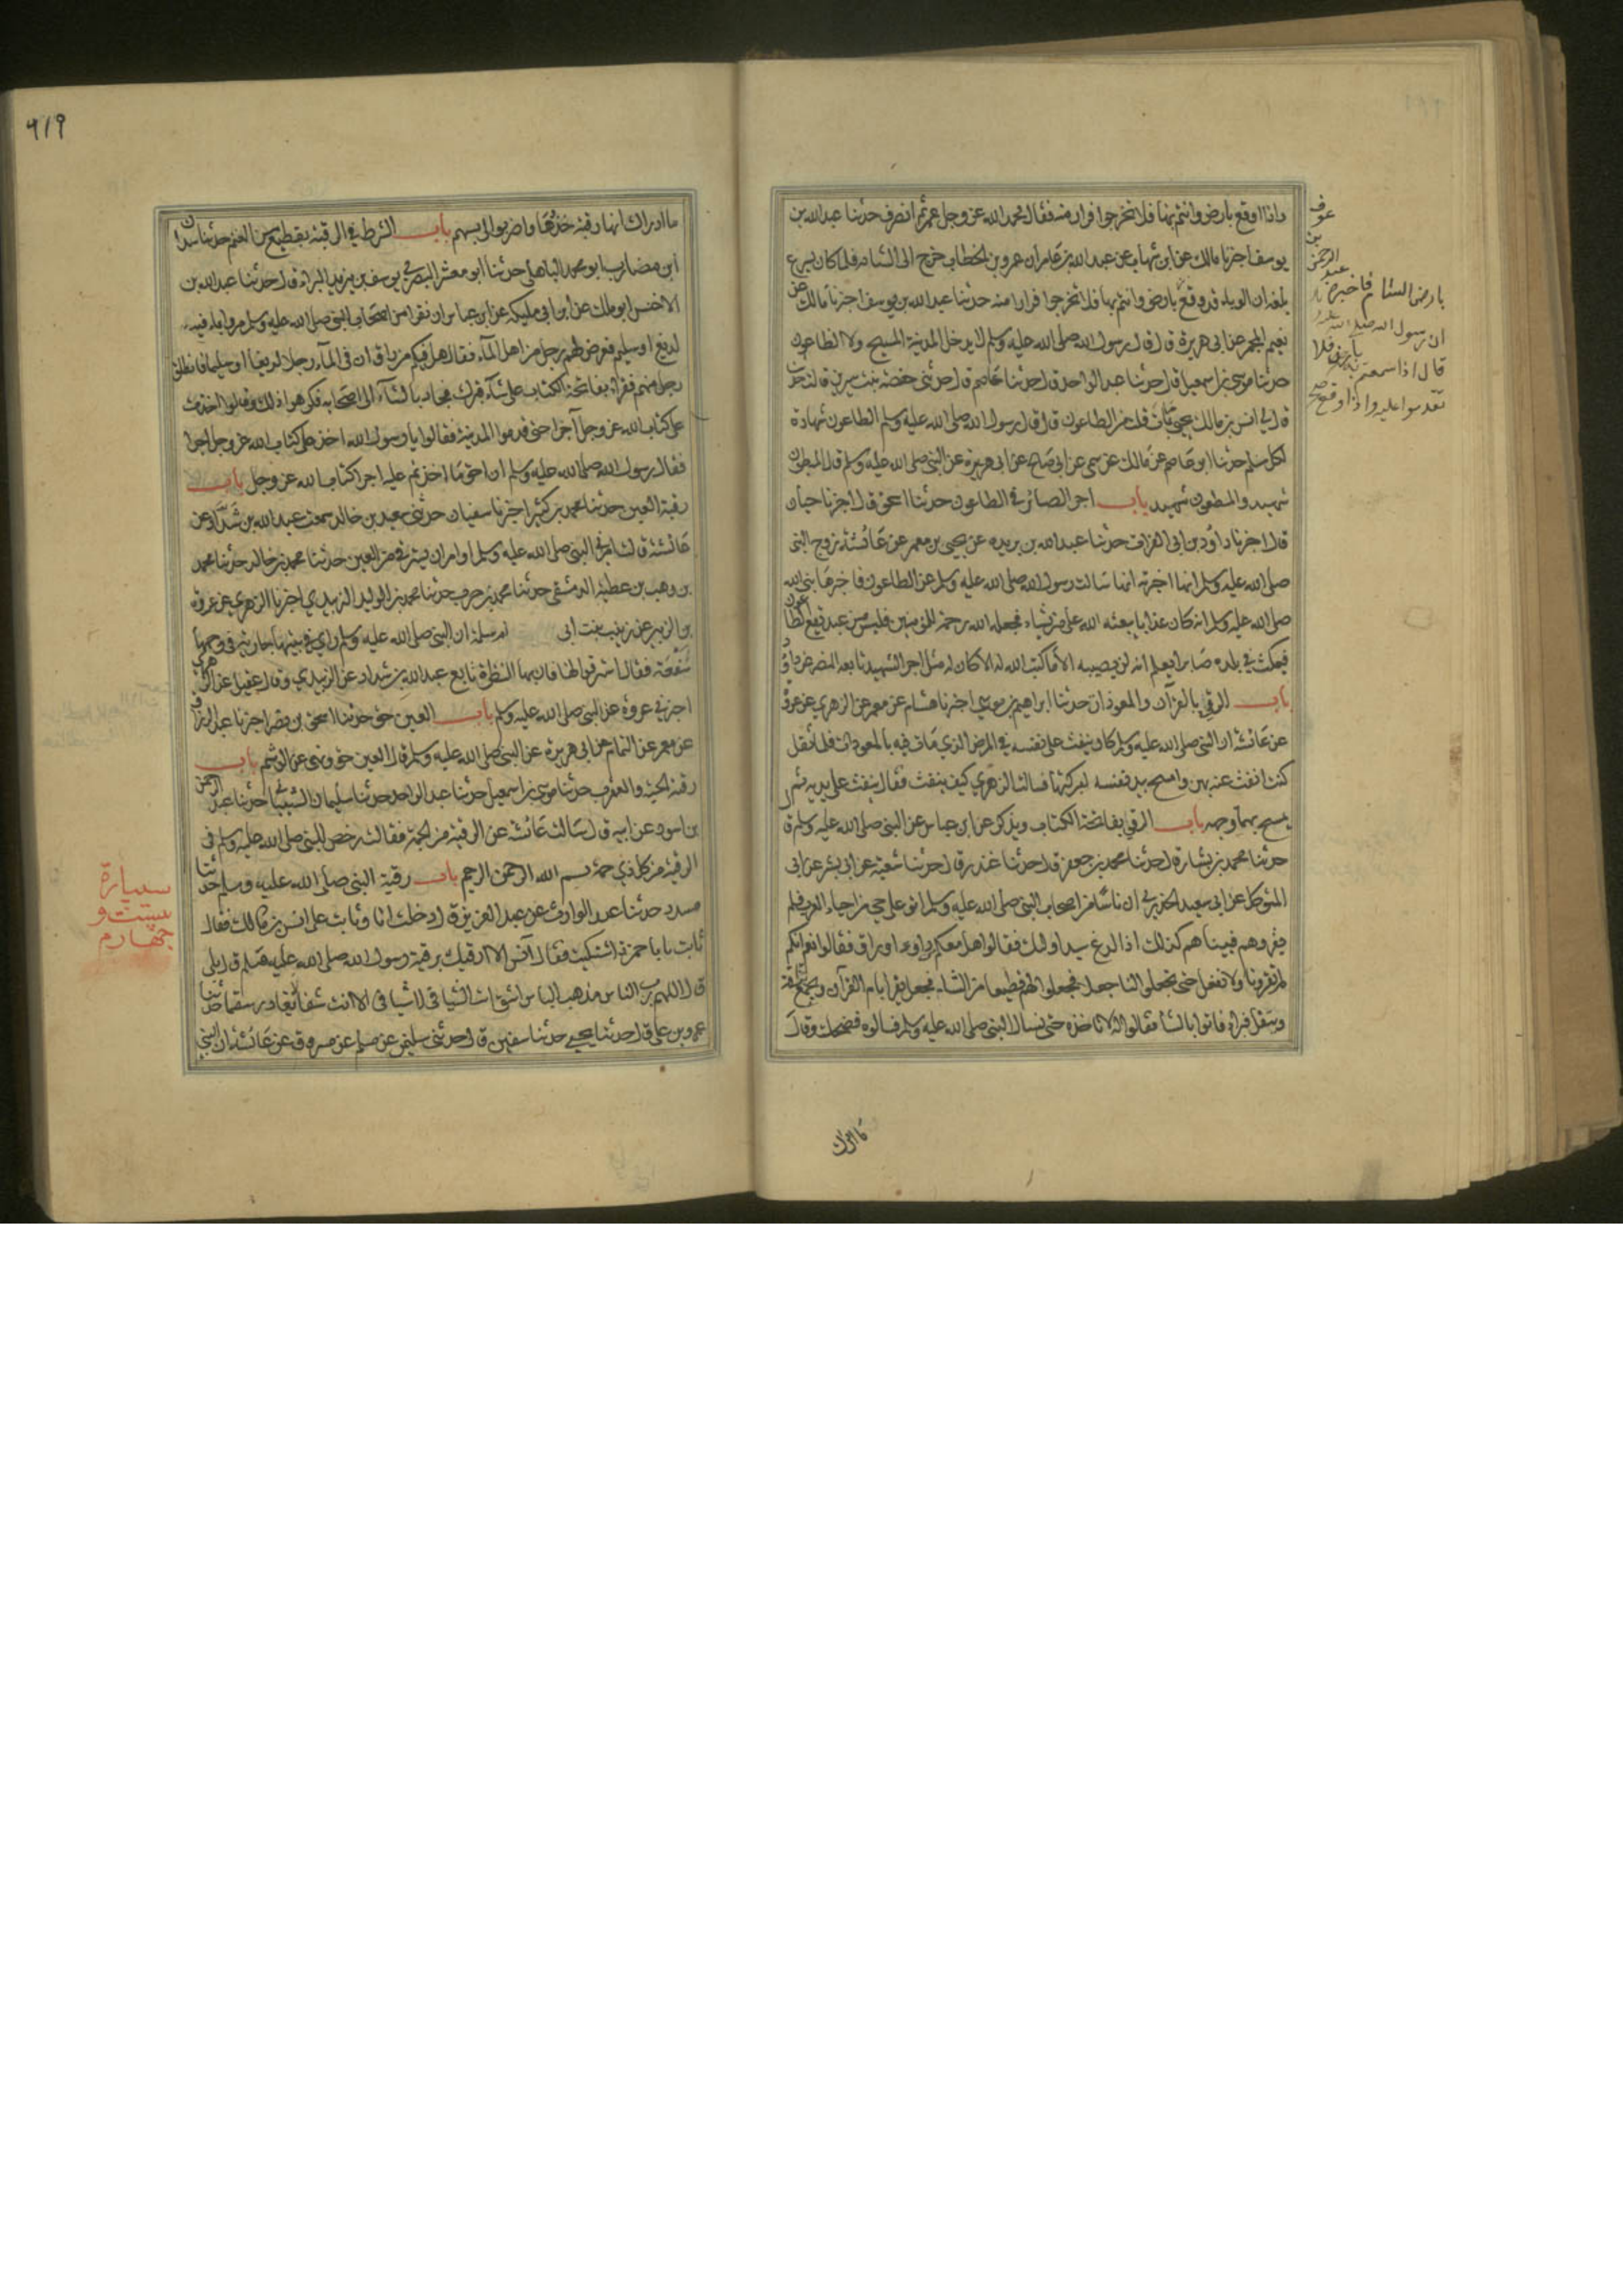 واذا وقع بارض وانتم بها فلا تخرجوا فرارا منه فقال فحمد الله عز وجل عمر ثم انصرف حدثنا عبد الله بن
يوسف اخبرنا مالك عن ابن شهاب عن عبد الله بن عامر ان عمر بن الخطاب خرج الى الشام فلما كان بسرغ
بلغه ان الوباء قد وقع بارض وانتم بها فلا تخرجوا فرارا منه حدثنا عبد الله بن يوسف اخبرنا مالك عن
نعيم المجمر عن ابى هريرة قال قال رسول الله صلى الله عليه وسلم لا يدخل المدينة المسيح ولا الطاعون
حدثنا موسى بن اسمعيل قال حدثنا عبد الواحد قال حدثنا عاصم قال حدثنى حفصة بنت سيرين قالت
قال لي انس بن مالك يحيى مات قلت من الطاعون قال قال رسول الله صلى الله عليه وسلم الطاعون شهادة
لكل مسلم حدثنا ابو عاصم عن مالك عن سمى عن ابى صالح عن ابى هريرة عن النبى صلى الله عليه وسلم قال المبطون
شهيد والمطعون شهيد باب اجر الصابر في الطاعون حدثنا اسحق قال اخبرنا حبان
قال اخبرنا داود بن ابى الفرات حدثنا عبد الله بن بريده عن يحيى بن معمر عن عائشة زوج النبى
صلى الله عليه وسلم انها اخبرته انها سالت رسول الله صلى الله عليه وسلم عن الطاعون فاخبرها نبى الله
صلى الله عليه وسلم انه كان عذابا يبعثه الله على من يشاء فجعله الله رحمة للمؤمنين فليس من عبد يقع الطاعون
فيمكث في بلده صابرا يعلم انه لن يصيبه الا ما كتب الله له الا كان له مثل اجر الشهيد تابعه النضر عن داود
باب الرقى بالقرآن والمعوذات حدثنا ابراهيم بن موسى اخبرنا هشام عن معمر عن الزهري عن عروة
عن عائشة ان النبى صلى الله عليه وسلم كان ينفث على نفسه في المرض الذي مات فيه بالمعوذات فلما ثقل
كنت انفث عنه بهن وامسح بيد نفسه لبركتها فسالت الزهري كيف ينفث فقال ينفث على يديه ثم
يمسح بهما وجهه باب الرقى بفاتحة الكتاب ويذكر عن ابن عباس عن النبى صلى الله عليه وسلم
حدثنا محمد بن بشار قال حدثنا محمد بن جعفر قال حدثنا غندر قال حدثنا شعبة عن ابى بشر عن ابى
المتوكل عن ابى سعيد الخدري ان ناسا من اصحاب النبى صلى الله عليه وسلم اتو على حي من احياء العرب فلم
يقروهم فبينا هم كذلك اذا لدغ سيد اولئك فقالوا هل معكم دواء او راق فقالوا نعم انكم
لم تقرونا ولا نفعل حتى تجعلوا لنا جعلا فجعلوا لهم قطيعا من الشاء فجعل يقرا بام القرآن ويجمع بزاقه
ويتفل فبرا فاتوا بالشاء فقالوا لا ناخذه حتى نسال النبى صلى الله عليه وسلم فسالوه فضحك وقال
عوف
بن
الرحمن
عبد
بارض الشام فاخبره
ان رسول الله صلى الله
قال اذا سمعتم بارض فلا
تقدموا عليه واذا وقع صح
ما ادراك
٩١٩
ما ادراك انها رقية خذوها واضربوا لى بسهم باب الشرط في الرقية بقطيع من الغنم حدثنا سيدان
ابن مضارب ابو محمد الباهلى حدثنا ابو معشر البصري يوسف بن يزيد البراء قال حدثنا عبد الله بن
الاخنس ابو ملك عن ابن ابى مليكة عن ابن عباس ان نفرا من اصحاب النبى صلى الله عليه وسلم مروا بماء فيهم
لديغ او سليم فعرض لهم رجل من اهل الماء فقال هل فيكم من راق ان فى الماء رجلا لديغا او سليما فانطلق
رجل منهم فقرا بفاتحة الكتاب على شاء فبرك فجاء بالشاء الى اصحابه فكرهوا ذلك وقالوا اخذت
على كتاب الله عز وجل اجرا حتى قدموا المدينة فقالوا يا رسول الله اخذ على كتاب الله عز وجل اجرا
فقال رسول الله صلى الله عليه وسلم ان احق ما اخذتم عليه اجرا كتاب الله عز وجل باب
رقية العين حدثنا محمد بن كثير اخبرنا سفيان حدثنى معبد بن خالد سمعت عبد الله بن شداد عن
عائشة قالت امرنى النبى صلى الله عليه وسلم او امر ان يسترقى من العين حدثنا محمد بن خالد حدثنا محمد
بن وهب بن عطية الدمشقى حدثنا محمد بن حرب حدثنا محمد بن الوليد الزبيدي اخبرنا الزهري عن عروة
بن الزبير عن زينب بنت ابى ام سلمة ان النبى صلى الله عليه وسلم راى في بيتها جارية في وجهها
سفعة فقال استرقوا لها فان بها النظرة تابع عبد الله بن شداد عن الزبيدي وقال عقيل عن الزهرى
اخبرنى عروة عن النبى صلى الله عليه وسلم باب العين حق حدثنا اسحق بن نصر اخبرنا عبد الرزاق
عن معمر عن همام عن ابى هريرة عن النبى صلى الله عليه وسلم قال العين حق ونهى عن الوشم باب
رقية الحية والعقرب حدثنا موسى بن اسمعيل حدثنا عبد الواحد حدثنا سليمان الشيبانى حدثنا عبد الرحمن
بن اسود عن ابيه قال سالت عائشة عن الرقية من الحمة فقالت رخص النبى صلى الله عليه وسلم فى
الرقية من كل ذي حمة بسم الله الرحمن الرحيم باب رقية النبى صلى الله عليه وسلم حدثنا
مسدد حدثنا عبد الوارث عن عبد العزيز قال دخلت انا وثابت على انس بن مالك فقال
ثابت يا با حمزة اشتكيت فقال انس الا ارقيك برقية رسول الله صلى الله عليه وسلم قال بلى
قال اللهم رب الناس مذهب الباس اشف انت الشافى لا شافى الا انت شفاء لا يغادر سقما حدثنا
عمرو بن على قال حدثنا يحيى حدثنا سفين قال حدثنى سليمن عن مسلم عن مسروق عن عائشة ان النبى
سيپارة
بيست و
چهارم